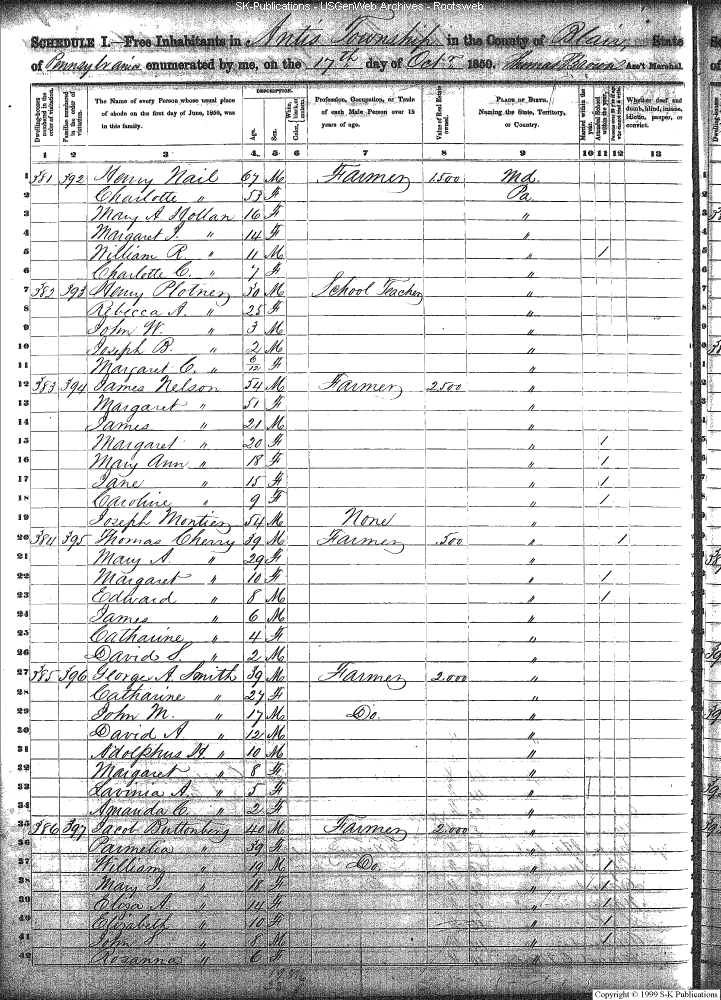 SK-Publications - USGenWeb Archives - Rootsweb
SCHEDULE I.—Free Inhabitants in Antis Township in the County of Blair, State
of Pennsylvania enumerated by me, on the 17th day of Octr 1850. Thomas Brown Ass't Marshal.
Dwelling-houses numbered in the order of visitation. Families numbered in the order of visitation. The Name of every Person whose usual place of abode on the first day of June, 1850, was in this family. DESCRIPTION. Age. Sex. White, Color, black, or mulatto. Profession, Occupation, or Trade of each Male Person over 15 years of age. Value of Real Estate owned. PLACE OF BIRTH. Naming the State, Territory, or Country. Married within the year. Attended School within the year. Whether deaf and dumb, blind, insane, idiotic, pauper, or convict.
1 2 3 4 5 6 7 8 9 10 11 12 13
1 381 392 Henry Nail 67 M Farmer 1500 Md.
2 Charlotte " 53 F Pa
3 Mary A. Hollan 16 F "
4 Margaret J. " 14 F "
5 William R. " 11 M " 1
6 Charlotte C. " 7 F "
7 382 393 Henry Plotner 30 M School Teacher "
8 Rebecca A. " 25 F "
9 John W. " 3 M "
10 Joseph B. " 2 M "
11 Margaret C. " 6/12 F "
12 383 394 James Nelson 54 M Farmer 2500 "
13 Margaret " 51 F "
14 James " 21 M "
15 Margaret " 20 F " 1
16 Mary Ann " 18 F " 1
17 Jane " 15 F " 1
18 Caroline " 9 F " 1
19 Joseph Montien 54 M None "
20 384 395 Thomas Cherry 39 M Farmer 500 " 1
21 Mary A. " 29 F "
22 Margaret " 10 F " 1
23 Edward " 8 M " 1
24 James " 6 M "
25 Catharine " 4 F "
26 David S. " 2 M "
27 385 396 George A. Smith 39 M Farmer 2.000 "
28 Catharine " 27 F "
29 John M. " 17 M Do. "
30 David A. " 12 M "
31 Adolphus H. " 10 M "
32 Margaret " 8 F "
33 Lavinia A. " 5 F "
34 Amanda C. " 2 F "
35 386 397 Jacob Buttonberg 40 M Farmer 2.000 "
36 Parmelia " 39 F "
37 William " 19 M Do. " 1
38 Mary J. " 18 F " 1
39 Eliza A. " 14 F " 1
40 Elizabeth " 10 F " 1
41 John " 8 M " 1
42 Rosanna " 6 F "
Copyright © 1999 S-K Publications